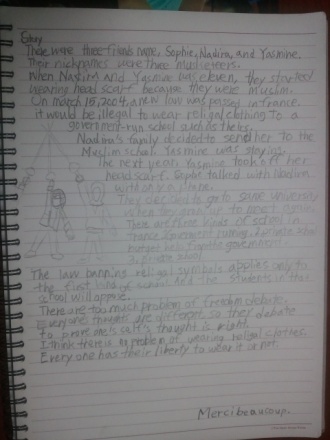 Story
There were three friends name, Sophie, Nadira, and Yasmine.
Their nicknames were Three Musketeers.
When Nadira and Yasmine was eleven, they started
wearing head scarf because they were Muslim.
On march 15, 2004, a new law was passed in france.
It would be illegal to wear religal clothing to a
government-run school such as theirs.
Nadira's family decided to send her to the
Muslim school. Yasmine was staying.
The next year Yasmine took off her
head scarf. Sophie talked with Nadira
with only a
They decided to go to same university
when they to meet again.
There are three kinds of school in
france. 1. government running. 2. private school
help from the government
3. private school
The law banning religal symbols applies only to
the first kind of school. And the students in that
school will oppose.
There are too much problem of freedom debate.
Everyone thoughts are different so they debate
to prove one's self's thought is right.
I think there is no problem of wearing religal clothes.
Every one has their liberty to wear it or not.
Merci beausoup.